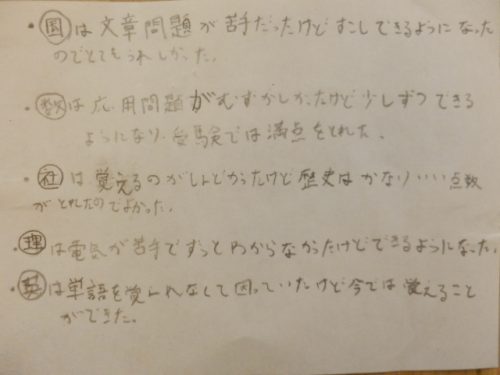 ・国は文章問題が苦手だったけどすこしできるようになった
のでとてもうれしかった。
・数は応用問題がむずかしかったけど少しずつできる
ようになり、受験では満点をとれた。
・社は覚えるのがしんどかったけど歴史はかなりいい点数
がとれたのでよかった。
・理は電気が苦手でずっとわからなかったけどできるようになった。
・英は単語を覚えれなくて困っていたけど今では覚えること
ができた。